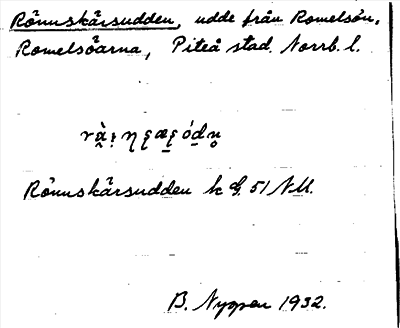 Rönnskärsudden, udde från Romelsön,
Romelsöarna, Piteå stad. Norrb. l.
Rönnskärsudden k G. 51 NM.
B. Nygren 1932.